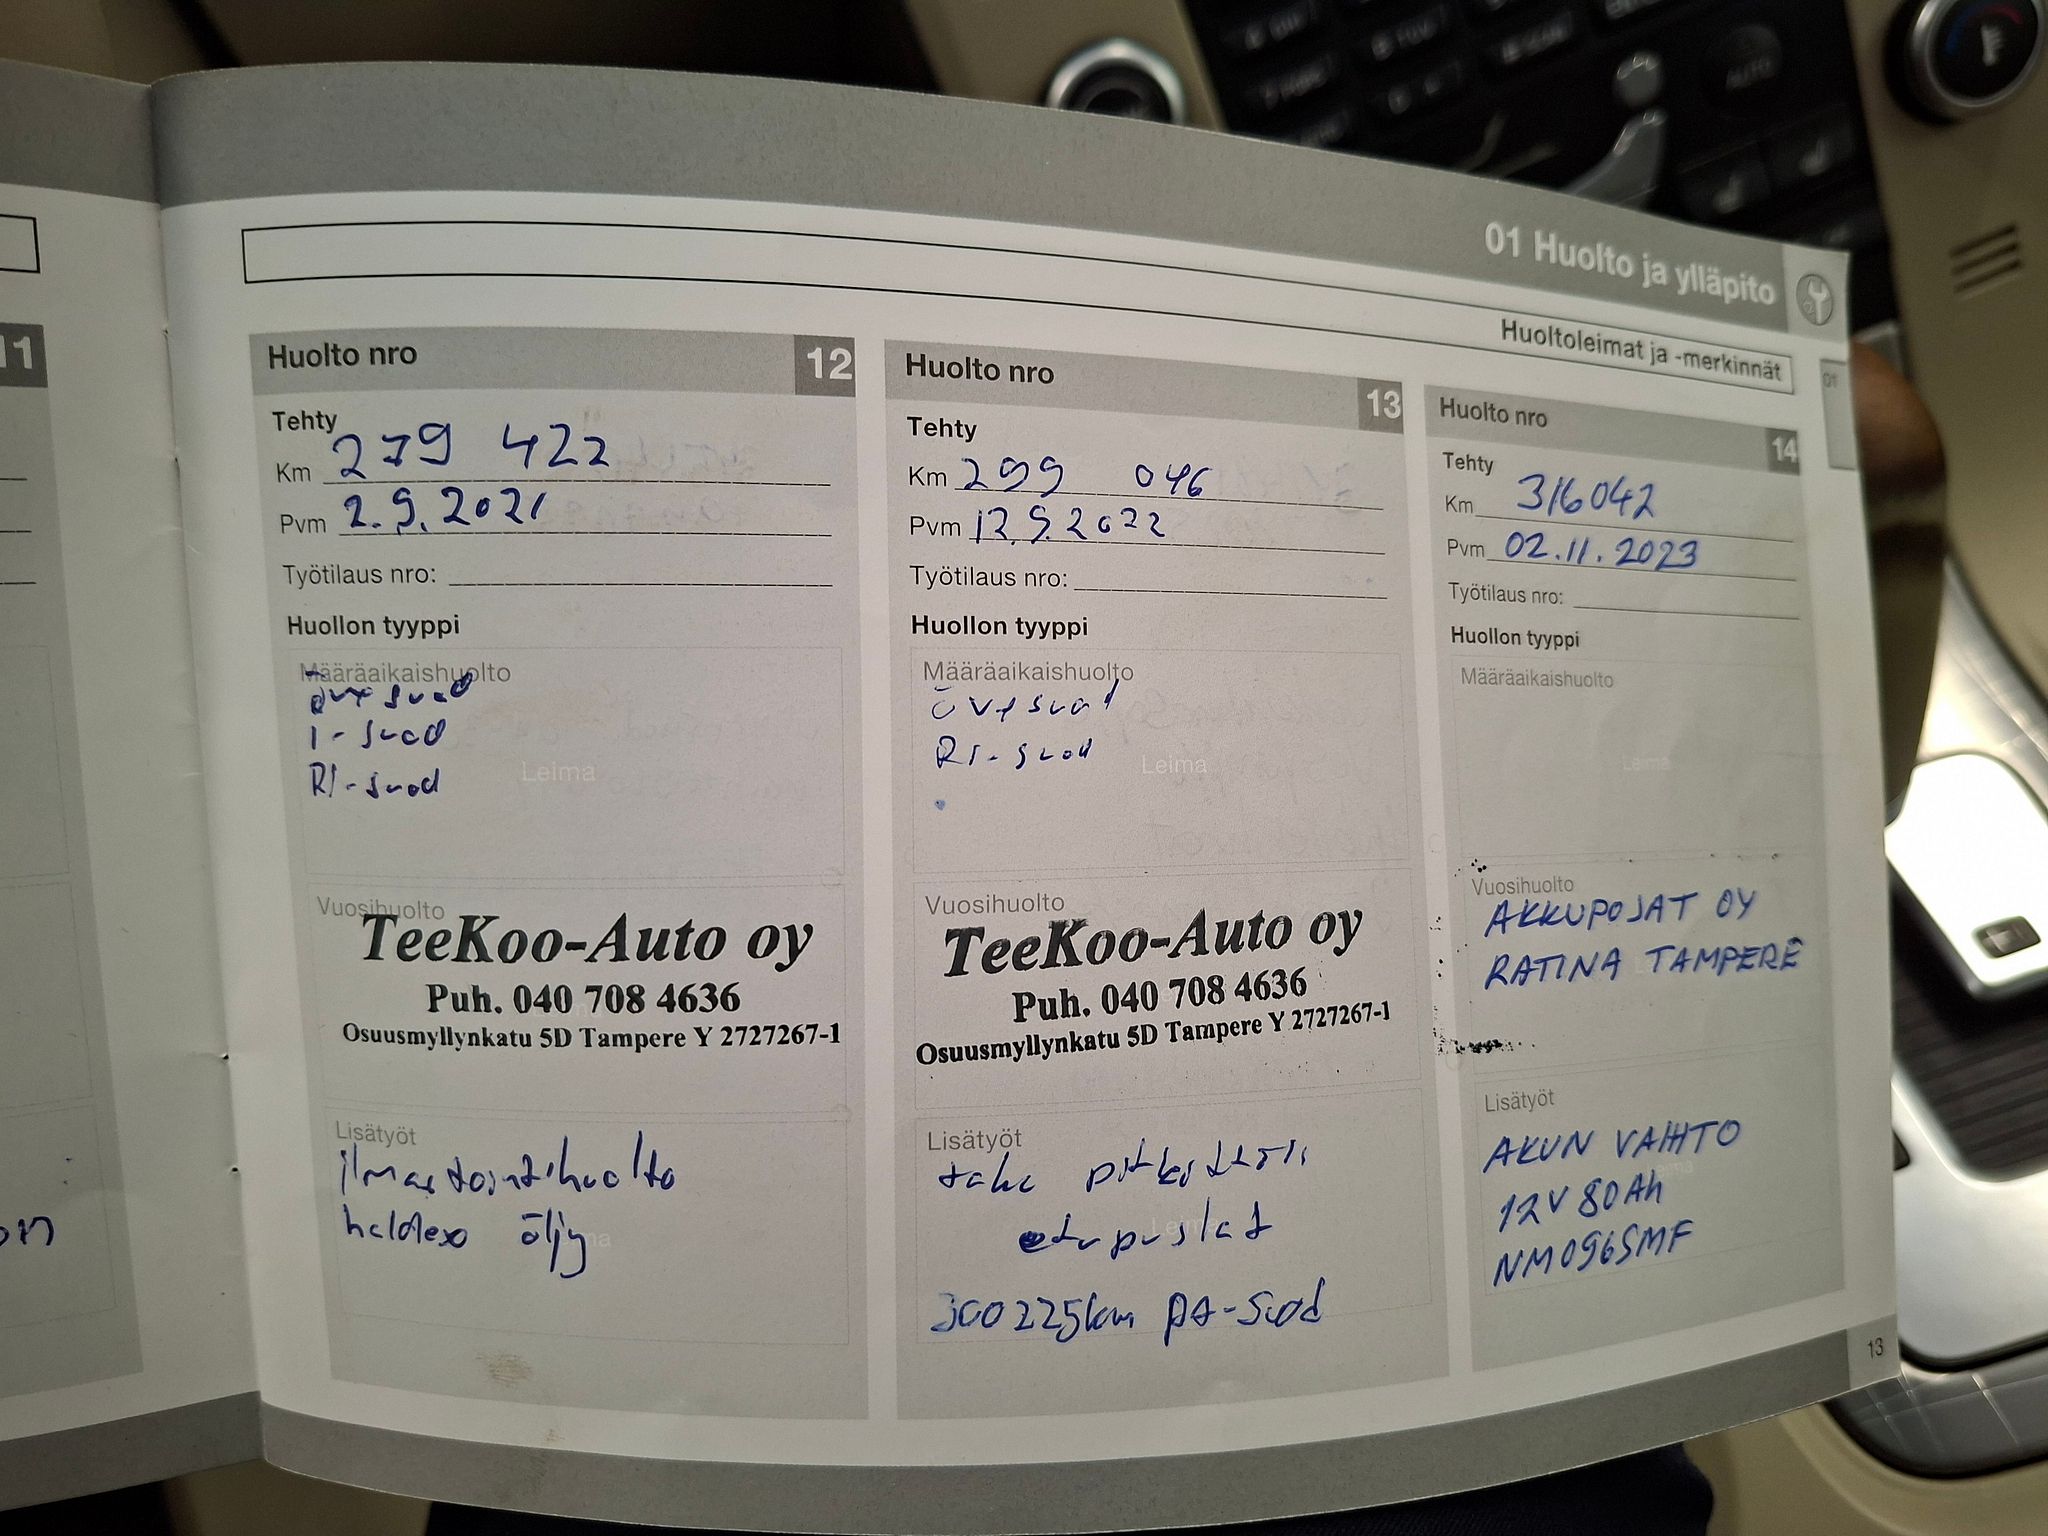 01 Huolto ja ylläpito
Huoltoleimat ja -merkinnät
01
11
Huolto nro 12
Tehty
Km 279 422
Pvm 2.9.2021
Työtilaus nro:
Huollon tyyppi
Määräaikaishuolto
öve suod
I-suod
RI-suod
Leima
Vuosihuolto
TeeKoo-Auto oy
Puh. 040 708 4636
Osuusmyllynkatu 5D Tampere Y 2727267-1
Lisätyöt
ilmastointihuolto
haldex öljy
Huolto nro 13
Tehty
Km 299 046
Pvm 12.9.2022
Työtilaus nro:
Huollon tyyppi
Määräaikaishuolto
öve suod
RI-suod
Leima
Vuosihuolto
TeeKoo-Auto oy
Puh. 040 708 4636
Osuusmyllynkatu 5D Tampere Y 2727267-1
Lisätyöt
taka
etupuslat
Leima
300225km PA-Suod
Huolto nro 14
Tehty
Km 316042
Pvm 02.11.2023
Työtilaus nro:
Huollon tyyppi
Määräaikaishuolto
Leima
Vuosihuolto
AKKUPOJAT OY
RATINA TAMPERE
Lisätyöt
AKUN VAIHTO
12V 80Ah
NM096SMF
13
AUTO